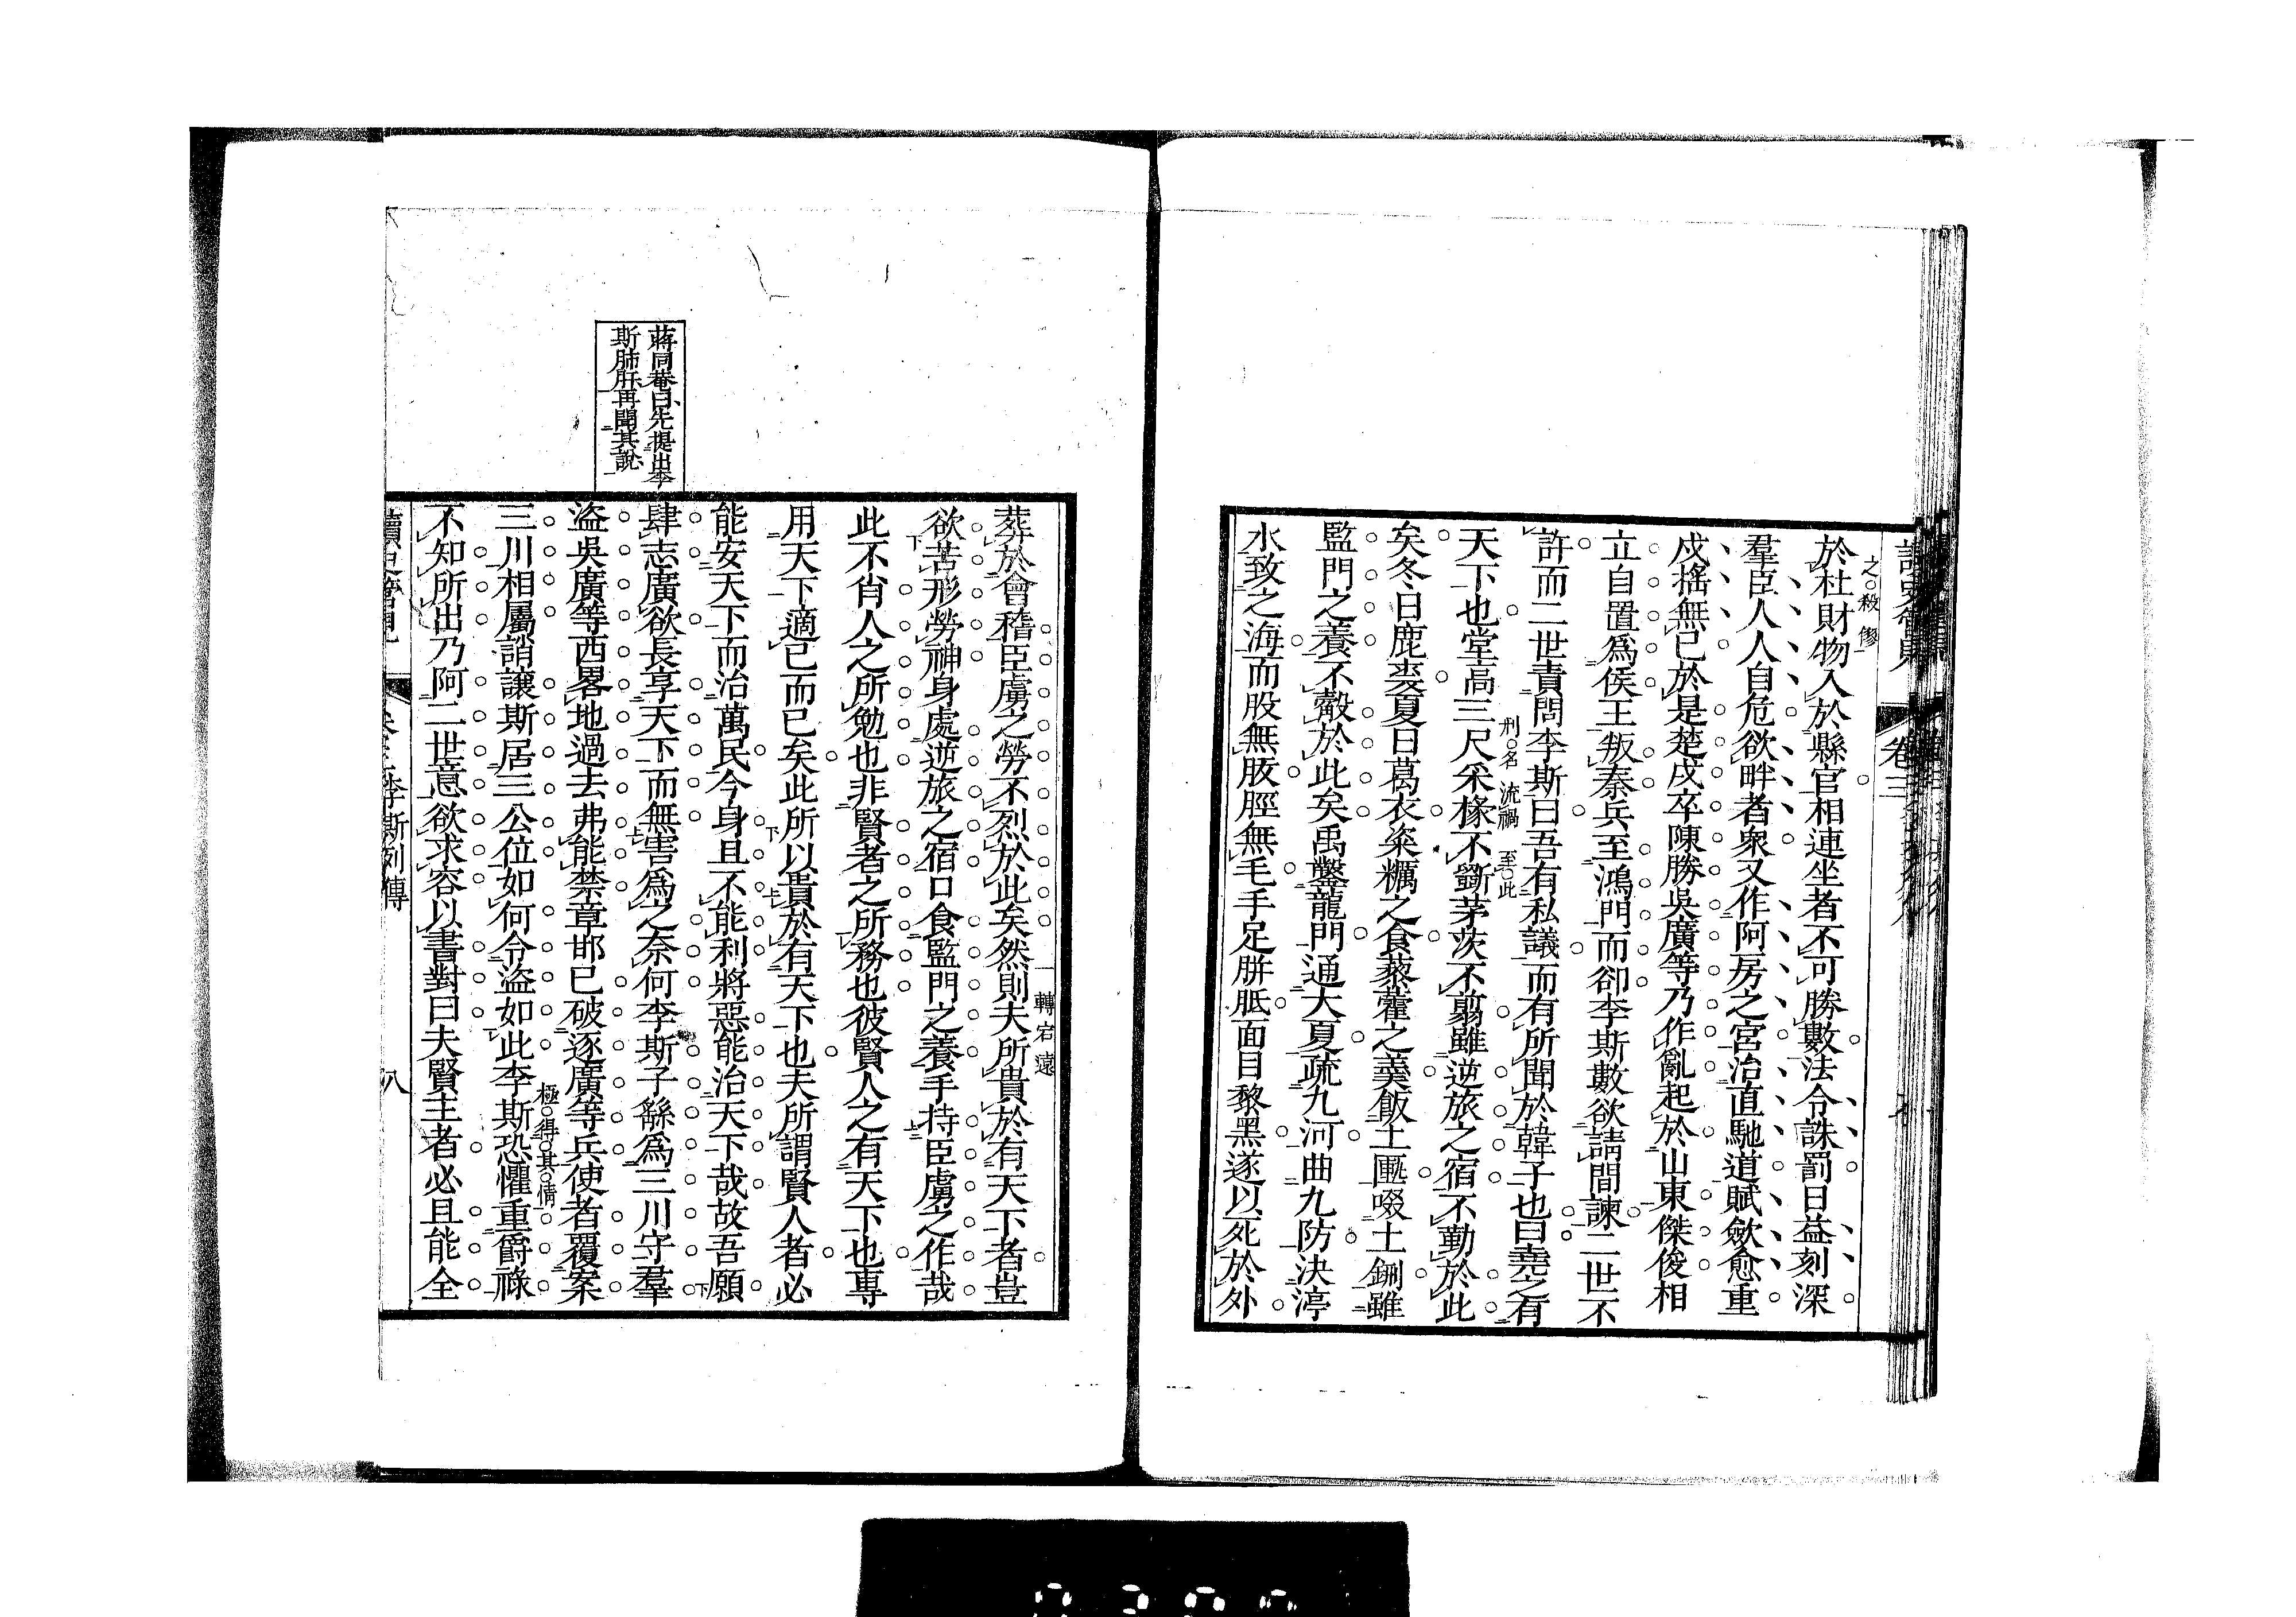 卷三
之殺僇
於杜財物入於縣官相連坐者不可勝數法令誅罰日益刻深
羣臣人人自危欲畔者衆又作阿房之宮治直馳道賦斂愈重
戍搖無已於是楚戍卒陳勝吳廣等乃作亂起於山東傑俊相
立自置爲侯王叛秦兵至鴻門而卻李斯數欲請間諫二世不
許而二世責問李斯曰吾有私議而有所聞於韓子也曰堯之有
刑名流禍至此
天下也堂高三尺采椽不斲茅茨不翦雖逆旅之宿不勤於此
矣冬日鹿裘夏日葛衣粢糲之食藜藿之羹飯土匭啜土鉶雖
監門之養不觳於此矣禹鑿龍門通大夏疏九河曲九防決渟
水致之海而股無胈脛無毛手足胼胝面目黎黑遂以死於外
轉宕遠
葬於會稽臣虜之勞不烈於此矣然則夫所貴於有天下者豈
欲苦形勞神身處逆旅之宿口食監門之養手持臣虜之作哉
此不肖人之所勉也非賢者之所務也彼賢人之有天下也專
用天下適己而已矣此所以貴於有天下也夫所謂賢人者必
能安天下而治萬民今身且不能利將惡能治天下哉故吾願
肆志廣欲長享天下而無害爲之奈何李斯子繇爲三川守羣
盜吳廣等西畧地過去弗能禁章邯已破逐廣等兵使者覆案
極得其情
三川相屬誚讓斯居三公位如何令盜如此李斯恐懼重爵祿
不知所出乃阿二世意欲求容以書對曰夫賢主者必且能全
蔣同菴曰先提出李
斯肺肝再開其說
李斯列傳
八